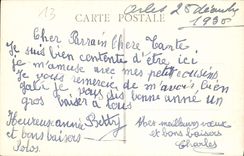 13
CARTE POSTALE
Arles 28 décembre
1930
Cher Parrain Chère Tante
Je suis bien contente d'être ici
je m'amuse avec mes petits cousins
Je vous remercie de m'avoir bien
gaté je vous dis bonne anné un
gros baiser à tous
Betty
Heureuse année
et bons baisers
Mes meilleurs vœux
et bons baisers
Charles